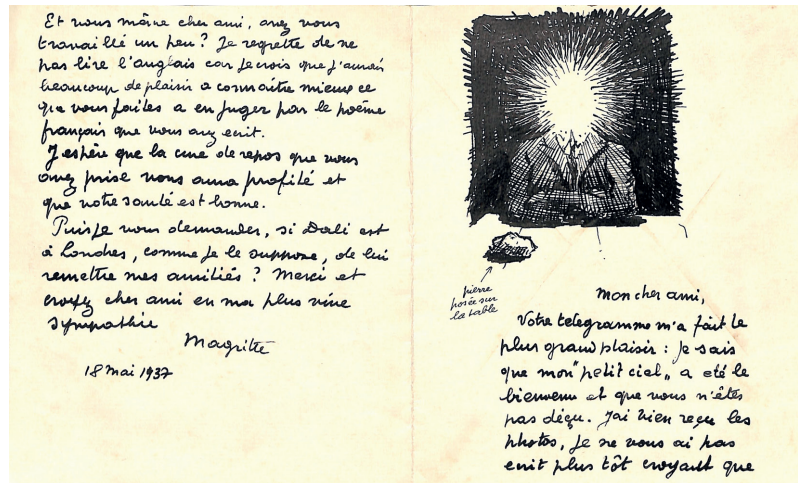 Et vous même cher ami, avez vous
travaillé un peu? Je regrette de ne
pas lire l'anglais car je crois que j'aurais
beaucoup de plaisir a connaître mieux ce
que vous faites a en juger par le poème
français que vous avez ecrit.
J'espère que la cure de repos que vous
avez prise vous aura profité et
que votre santé est bonne.
Puis-je vous demander, si Dali est
à Londres, comme je le suppose, de lui
remettre mes amitiés? Merci et
croyez cher ami en ma plus vive
sympathie
Magritte
18 Mai 1937
pierre
posée sur
la table
Mon cher ami,
Votre telegramme m'a fait le
plus grand plaisir : je sais
que mon "petit ciel" a eté le
bienvenu et que vous n'êtes
pas déçu. J'ai bien reçu les
photos, je ne vous ai pas
ecrit plus tôt croyant que